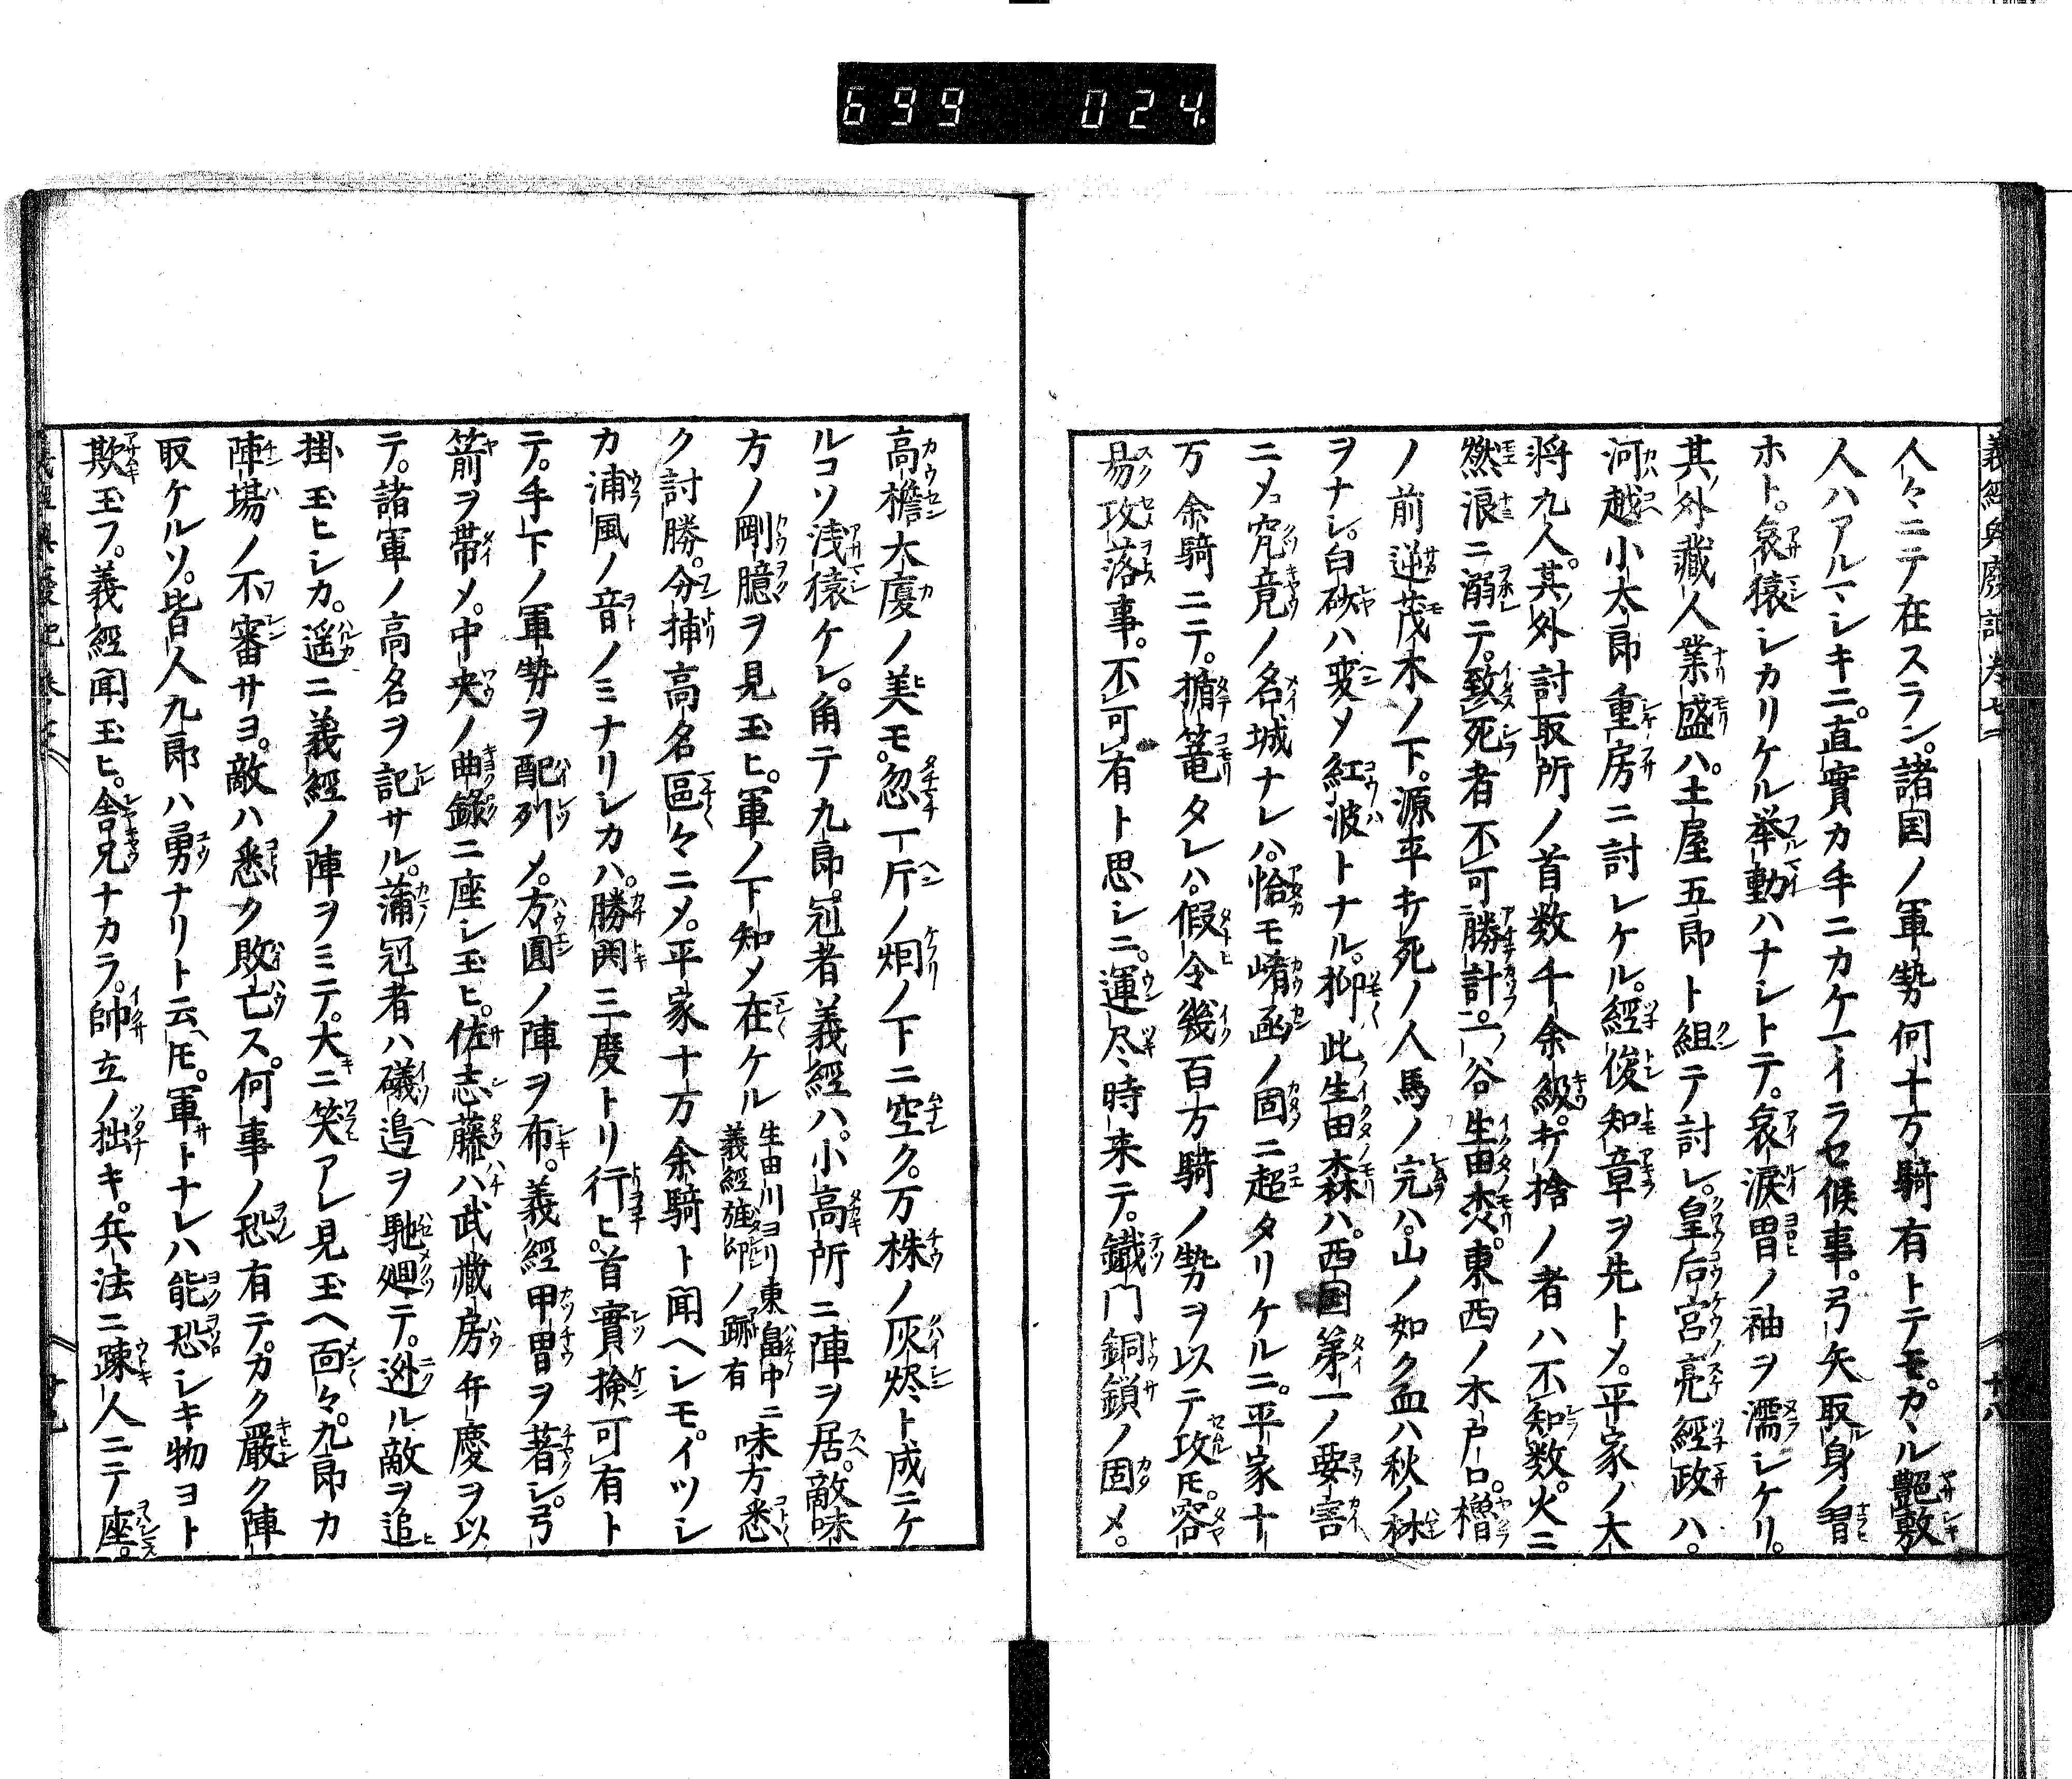 699 024
義經興廢記巻七 十八
人々ニテ在スラン。諸国ノ軍勢何十万騎有トテモ。カヽル艶敷
人ハアルマシキニ。直實カ手ニカケマイラセ候事。弓矢取身ノ習
ホト。哀猿シカリケル挙動ハナシトテ。哀涙冑ノ袖ヲ濡シケリ。
其外藏人業盛ハ。土屋五郎ト組テ討レ。皇后宮亮經政ハ。
河越小太郎重房ニ討レケル。經俊知章ヲ先トメ。平家ノ大
将九人。其外討取所ノ首数千余級。斬捨ノ者ハ不知数。火ニ
燃浪ニ溺テ。致死者不可勝計。一ノ谷生田森。東西ノ木戸口。櫓
ノ前逆茂木ノ下。源平斬死ノ人馬ノ完ハ。山ノ如ク血ハ秋ノ林
ヲナレ。白砂ハ変メ紅波トナル。抑此生田森ハ。西国第一ノ要害
ニメ。究竟ノ名城ナレハ。恰モ崤函ノ固ニ超タリケルニ。平家十
万余騎ニテ。楯篭タレハ。假令幾百万騎ノ勢ヲ以テ攻モ。容
易攻落事。不可有ト思シニ。運尽時来テ。鐵門銅鎖ノ固メ。
高檐大廈ノ美モ。忽一片ノ烟ノ下ニ空ク。万株ノ灰燼ト成ニケ
ルコソ浅猿ケレ。角テ九郎冠者義經ハ。小高所ニ陣ヲ居。敵味
方ノ剛臆ヲ見玉ヒ。軍ノ下知メ在ケル 生田川ヨリ東畠中ニ義經旌印ノ跡有 味方悉
ク討勝。分捕高名區々ニメ。平家十万余騎ト聞ヘシモ。イツシ
カ浦風ノ音ノミナリシカハ。勝閧三度トリ行ヒ。首實検可有ト
テ。手下ノ軍勢ヲ配列メ。方圓ノ陣ヲ布。義經甲冑ヲ著シ。弓
箭ヲ帯メ。中央ノ曲錄ニ座シ玉ヒ。佐志藤ハ武藏房弁慶ヲ以
テ。諸軍ノ高名ヲ記サル。蒲冠者ハ礒邉ヲ馳廻テ。迯ル敵ヲ追
掛玉ヒシカ。遥ニ義經ノ陣ヲミテ。大ニ笑アレ見玉ヘ面々。九郎カ
陣場ノ不審サヨ。敵ハ悉ク敗亡ス。何事ノ恐有テ。カク嚴ク陣
取ケルソ。皆人九郎ハ勇ナリト云ヘモ。軍サトナレハ能恐シキ物ヨト
欺玉フ。義經聞玉ヒ。舎兄ナカラ。帥立ノ拙キ。兵法ニ疎人ニテ座。